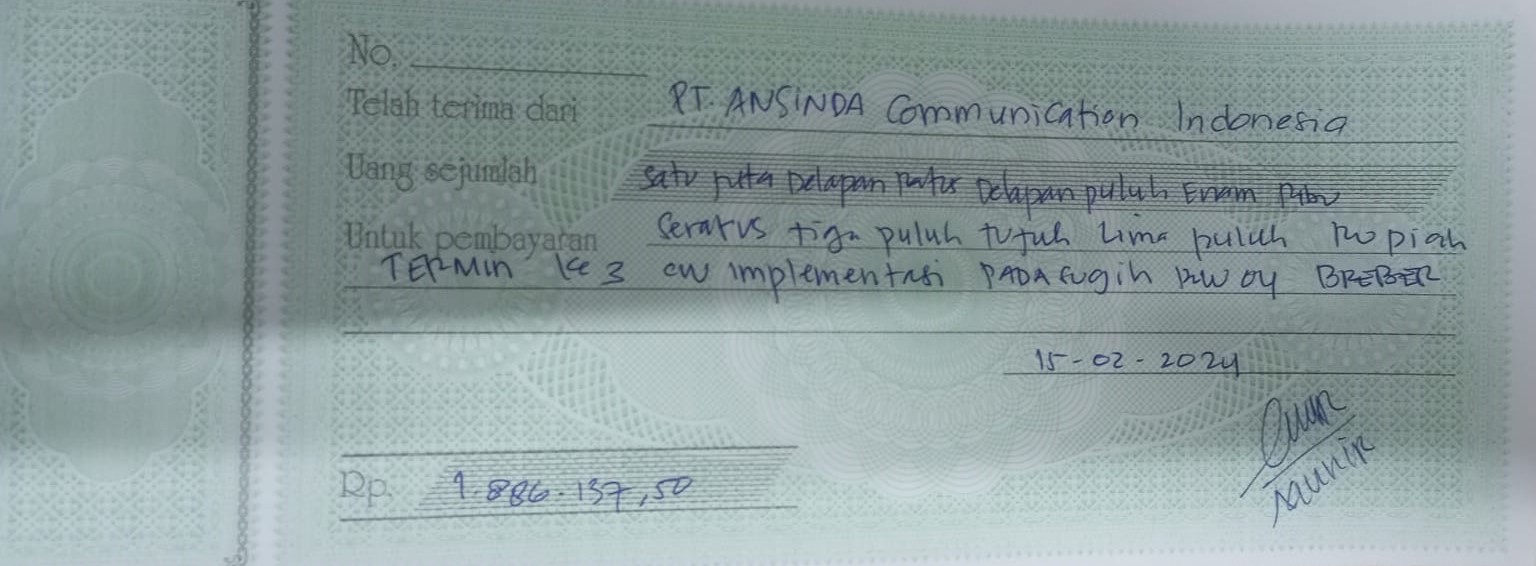 No.
Telah terima dari PT. ANSINDA Communication Indonesia
Uang sejumlah satu juta Delapan ratus Delapan puluh Enam Ribu
Untuk pembayaran seratus tiga puluh tujuh Lima puluh Rupiah
TERMIN Ke 3 CW implementasi PADA sugih RW 04 BREBER
15-02-2024
Rp. 1.886.137,50
Munir